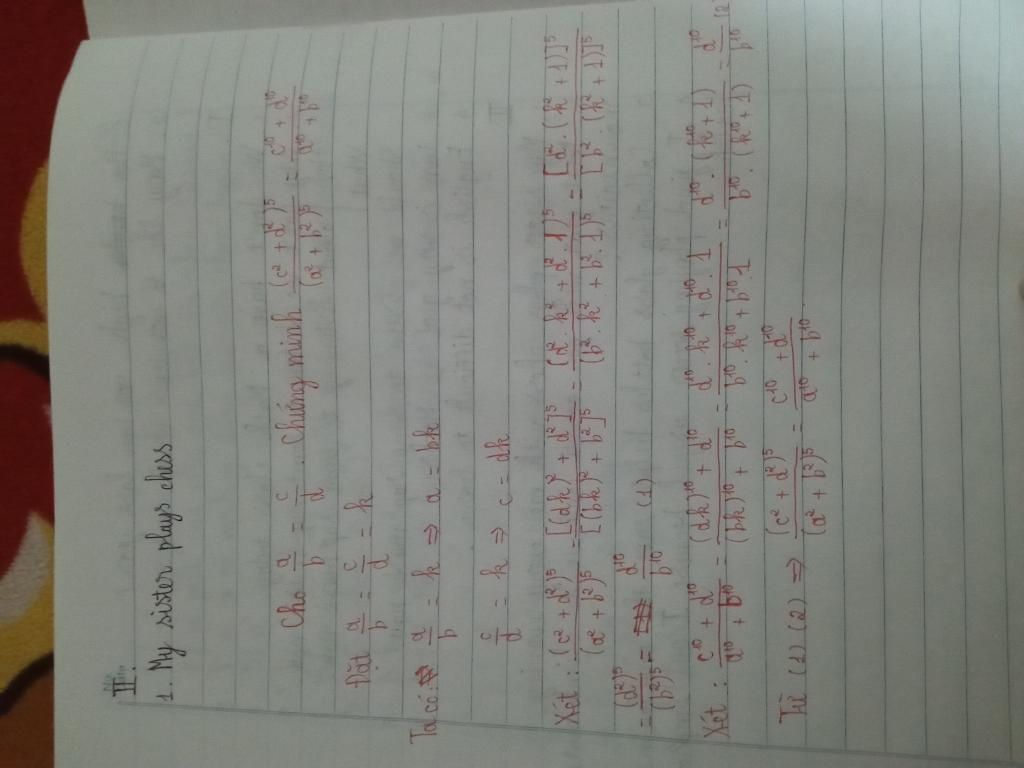 II.
1. My sister plays chess
Cho a/b = c/d. Chứng minh (c² + d²)⁵/(a² + b²)⁵ = (c¹⁰ + d¹⁰)/(a¹⁰ + b¹⁰)
Đặt a/b = c/d = k
Ta có: a/b = k ⇒ a = bk
c/d = k ⇒ c = dk
Xét: (c² + d²)⁵/(a² + b²)⁵ = [(dk)² + d²]⁵/[(bk)² + b²]⁵ = (d². k² + d². 1)⁵/(b². k² + b². 1)⁵ = [d². (k² + 1)]⁵/[b². (k² + 1)]⁵
= (d²)⁵/(b²)⁵ = d¹⁰/b¹⁰ (1)
Xét: (c¹⁰ + d¹⁰)/(a¹⁰ + b¹⁰) = ((dk)¹⁰ + d¹⁰)/((bk)¹⁰ + b¹⁰) = (d¹⁰. k¹⁰ + d¹⁰. 1)/(b¹⁰. k¹⁰ + b¹⁰. 1) = d¹⁰. (k¹⁰ + 1)/b¹⁰. (k¹⁰ + 1) = d¹⁰/b¹⁰ (2)
Từ (1) (2) ⇒ (c² + d²)⁵/(a² + b²)⁵ = (c¹⁰ + d¹⁰)/(a¹⁰ + b¹⁰)